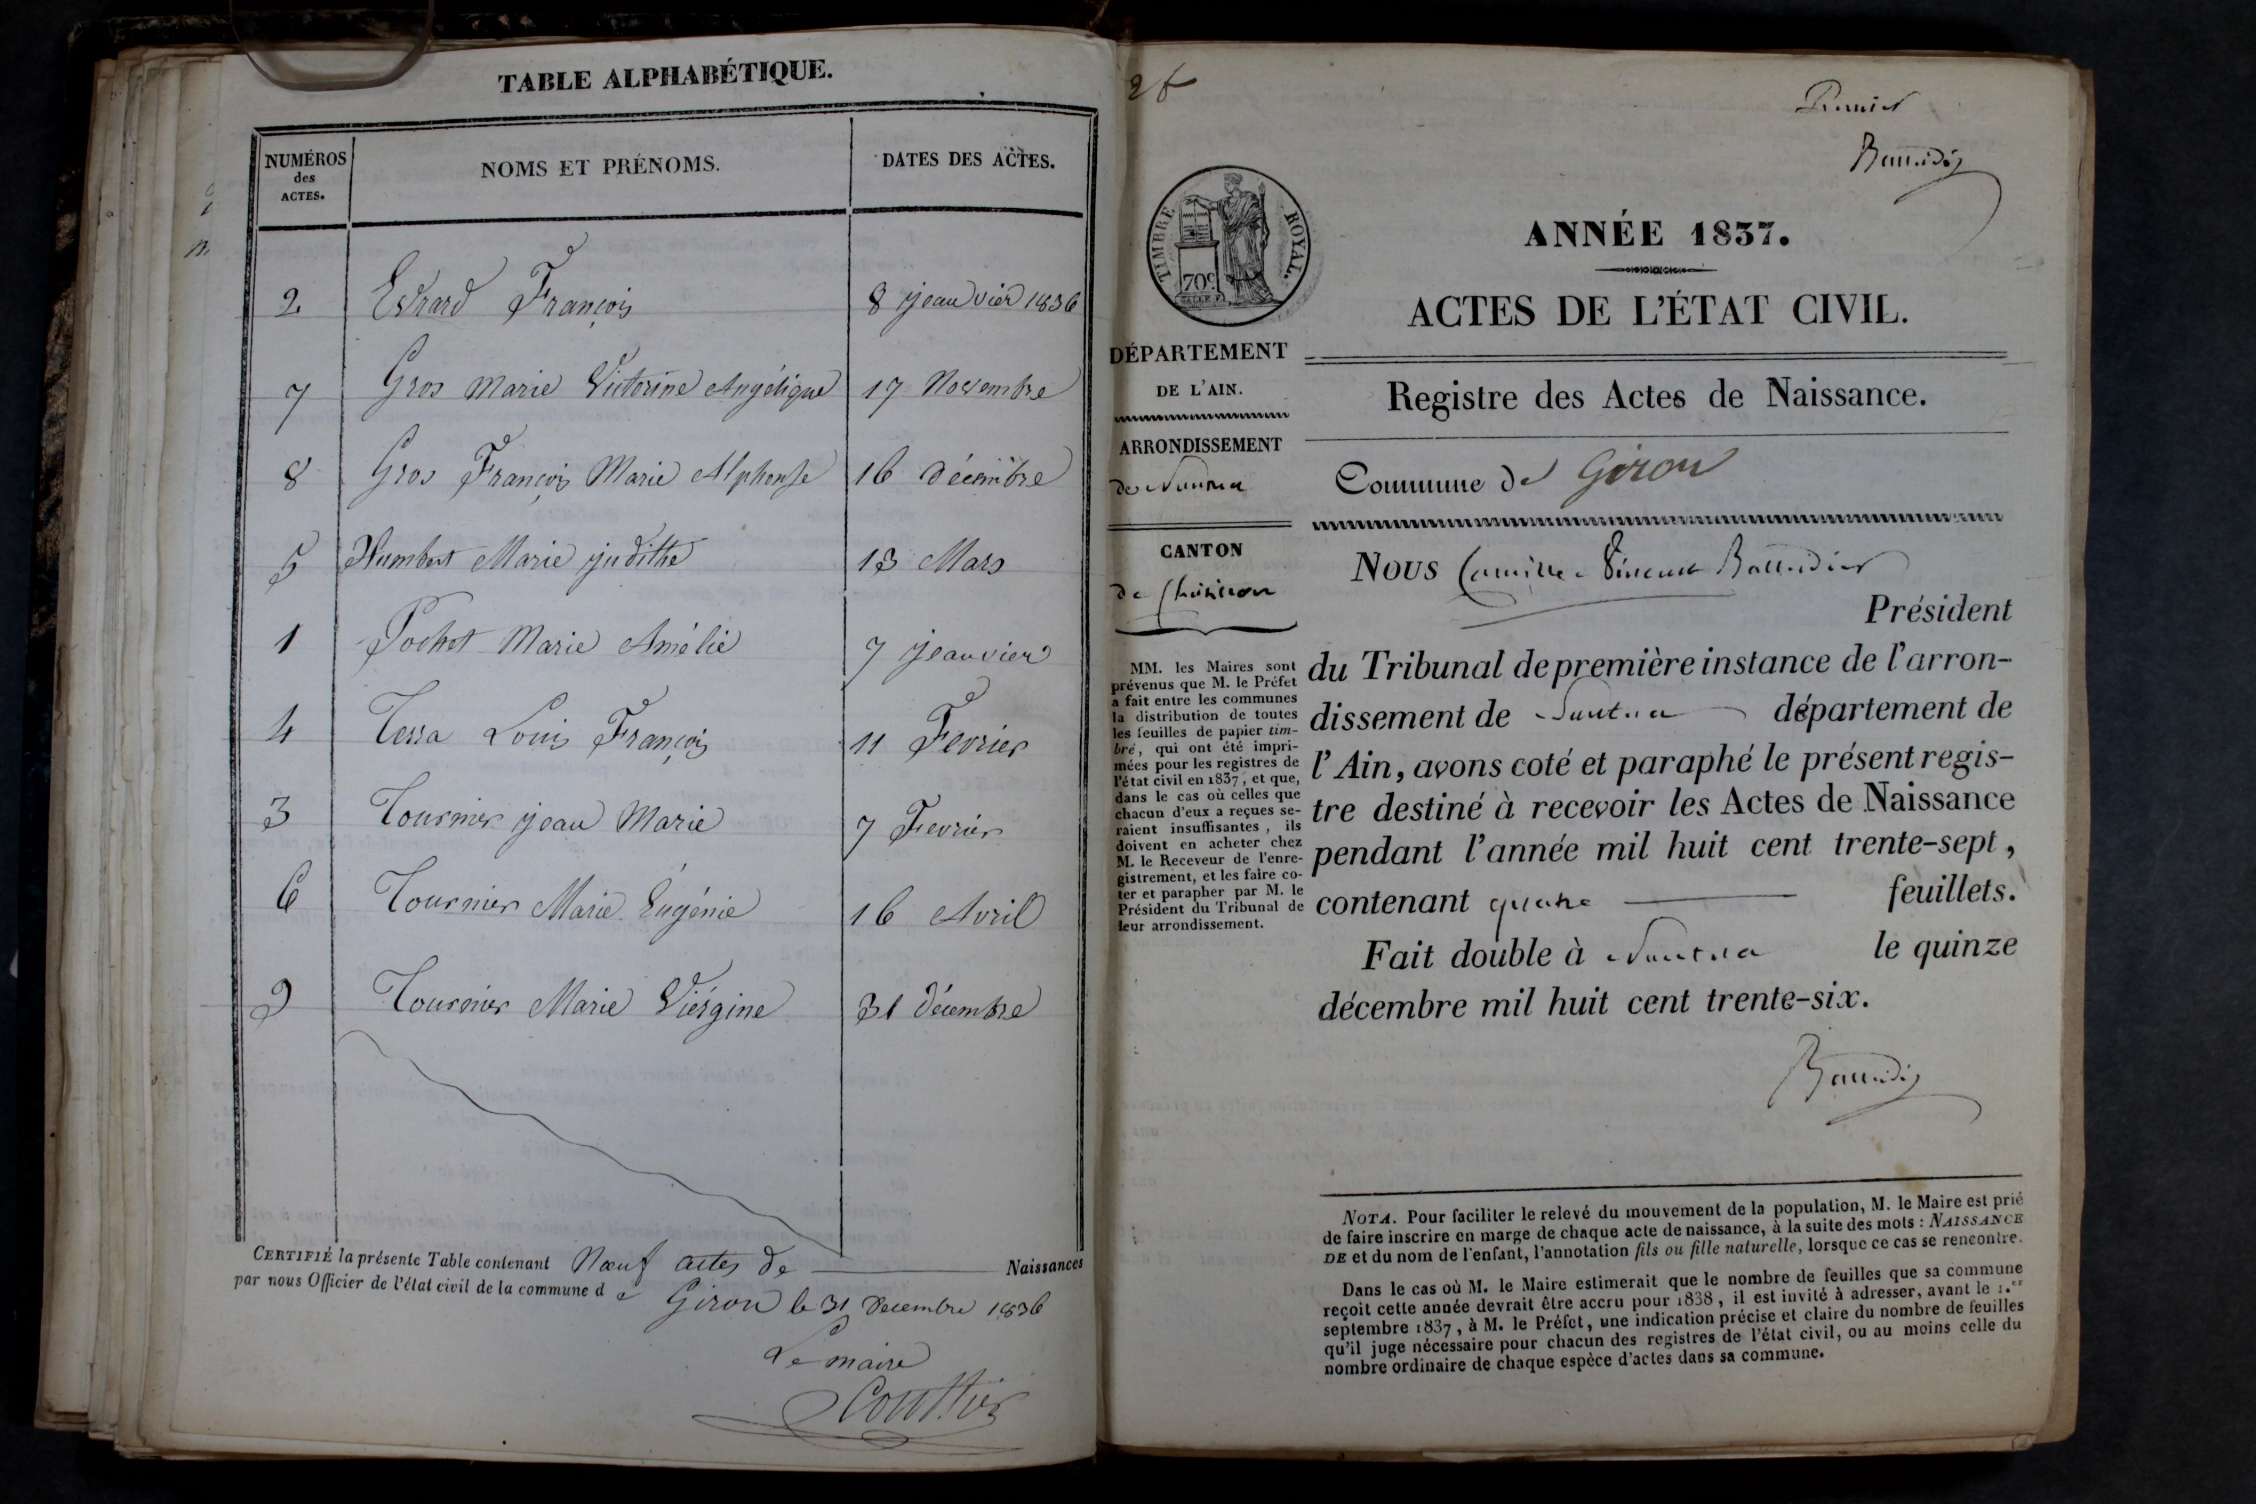 TABLE ALPHABÉTIQUE.
NUMÉROS des ACTES. NOMS ET PRÉNOMS. DATES DES ACTES.
2 Evrard François 8 jeauvier 1836
7 Gros Marie Victorine Angélique 17 Novembre
8 Gros François Marie Alphonse 16 décembre
5 Humbert Marie judithe 13 Mars
1 Pochet Marie Amélie 7 jeauvier
4 Terra Louis François 11 Fevrier
3 Tournier jean Marie 7 Fevrier
6 Tournier Marie Eugénie 16 Avril
9 Tournier Marie Viérgine 31 décembre
CERTIFIÉ la présente Table contenant Nœuf actes de Naissances
par nous Officier de l'état civil de la commune de Giron le 31 decembre 1836
Le maire
26
Premier
ANNÉE 1837.
TIMBRE ROYAL.
70c
ACTES DE L'ÉTAT CIVIL.
DÉPARTEMENT
DE L'AIN.
Registre des Actes de Naissance.
ARRONDISSEMENT
de Nantua
Commune de Giron
CANTON
de Chatillon
MM. les Maires sont
prévenus que M. le Préfet
a fait entre les communes
la distribution de toutes
les feuilles de papier tim-
bré, qui ont été impri-
mées pour les registres de
l'état civil en 1837, et que,
dans le cas où celles que
chacun d'eux a reçues se-
raient insuffisantes, ils
doivent en acheter chez
M. le Receveur de l'enre-
gistrement, et les faire co-
ter et parapher par M. le
Président du Tribunal de
leur arrondissement.
Nous Camille Vincent
Président
du Tribunal de première instance de l'arron-
dissement de Nantua département de
l'Ain, avons coté et paraphé le présent regis-
tre destiné à recevoir les Actes de Naissance
pendant l'année mil huit cent trente-sept,
contenant quatre feuillets.
Fait double à Nantua le quinze
décembre mil huit cent trente-six.
NOTA. Pour faciliter le relevé du mouvement de la population, M. le Maire est prié
de faire inscrire en marge de chaque acte de naissance, à la suite des mots : NAISSANCE
DE et du nom de l'enfant, l'annotation fils ou fille naturelle, lorsque ce cas se rencontre.
Dans le cas où M. le Maire estimerait que le nombre de feuilles que sa commune
reçoit cette année devrait être accru pour 1838, il est invité à adresser, avant le 1.er
septembre 1837, à M. le Préfet, une indication précise et claire du nombre de feuilles
qu'il juge nécessaire pour chacun des registres de l'état civil, ou au moins celle du
nombre ordinaire de chaque espèce d'actes dans sa commune.